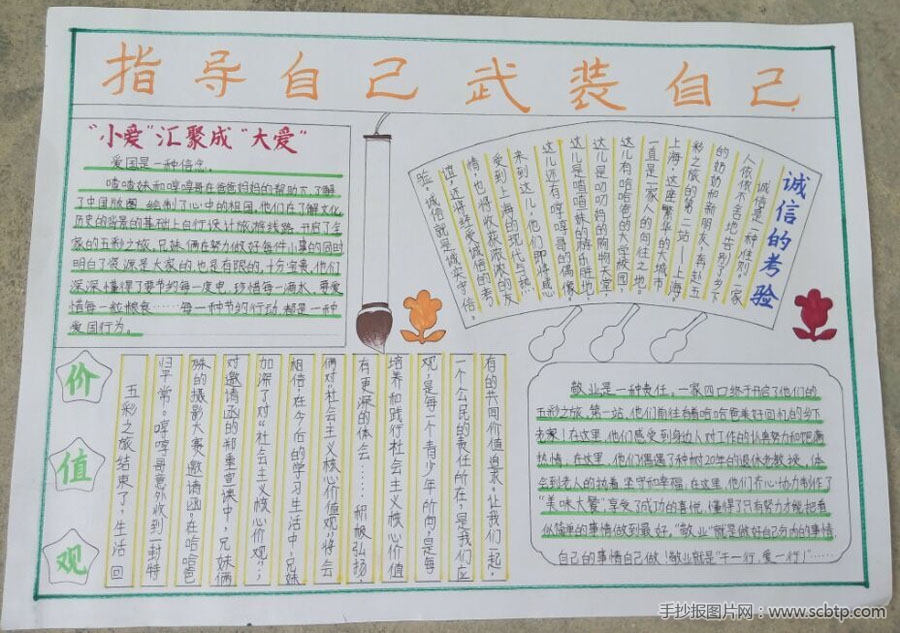 指导自己武装自己
“小爱”汇聚成“大爱”
爱国是一种信念。
喳喳妹和哼哼哥在爸爸妈妈的帮助下,了解
了中国版图,绘制了心中的祖国,他们在了解文化
历史的背景的基础上自行设计旅游线路,开启了全
家的五彩之旅,兄妹俩在努力做好各件小事的同时
明白了资源是大家的也是有限的,十分宝贵,他们
深深懂得了要节约每一度电,珍惜每一滴水、要爱
惜每一粒粮食……每一种节约行动,都是一种
爱国行为。
诚信的考验
诚信是一种准则。一家
人依依不舍地告别了乡下
的奶奶和新朋友,奔赴五
彩之旅的第二站——上海。
上海,这座繁华的大城市
一直是一家人的向往之地:
这儿有哈哈爸的大学校园,
这儿是叨叨妈的购物天堂,
这儿是喳喳妹的游乐胜地,
这儿还有哼哼哥的偶像…
来到这儿,他们即将感
受到上海的现代与热
情,也将收获浓浓的友
谊,还将经受诚信的考
验。诚信就是诚实守信,
价
值
观
五彩之旅结束了,生活回
归平常。哼哼哥意外收到一封特
殊的摄影大赛邀请函。在哈哈爸
对邀请函的郑重宣读中,兄妹俩
加深了对“社会主义核心价观”;
相信,在今后的学习生活中,兄妹
俩对“社会主义核心价值观”将会
有更深的体会……积极弘扬,
培养和践行社会主义核心价值
观,是每一个青少年所向,是每
一个公民的责任所在,是我们应
有的共同价值追求。让我们一起,
敬业是一种责任。一家四口终于开启了他们的
五彩之旅。第一站,他们前往着哈哈爸美好回忆的乡下
老家!在这里,他们感受到身边人对工作的认真努力和饱满
热情,在这里,他们偶遇了种树20年的退休老教授,体
会到老人的执着、坚守和幸福,在这里,他们齐心协力制作了
“美味大餐”,享受了成功的喜悦,懂得了只有努力才能把看
似简单的事情做到最好。“敬业”就是做好自己分内的事情,
自己的事情自己做!敬业就是“干一行,爱一行!”……
手抄报图片网:www.scbtp.com